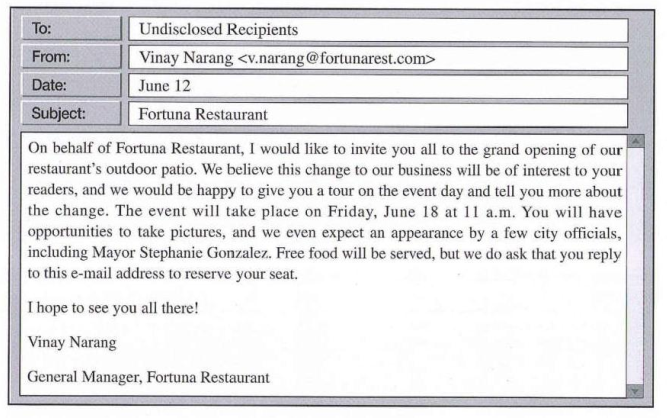 To: Undisclosed Recipients
From: Vinay Narang <v.narang@fortunarest.com>
Date: June 12
Subject: Fortuna Restaurant
On behalf of Fortuna Restaurant, I would like to invite you all to the grand opening of our
restaurant's outdoor patio. We believe this change to our business will be of interest to your
readers, and we would be happy to give you a tour on the event day and tell you more about
the change. The event will take place on Friday, June 18 at 11 a.m. You will have
opportunities to take pictures, and we even expect an appearance by a few city officials,
including Mayor Stephanie Gonzalez. Free food will be served, but we do ask that you reply
to this e-mail address to reserve your seat.
I hope to see you all there!
Vinay Narang
General Manager, Fortuna Restaurant